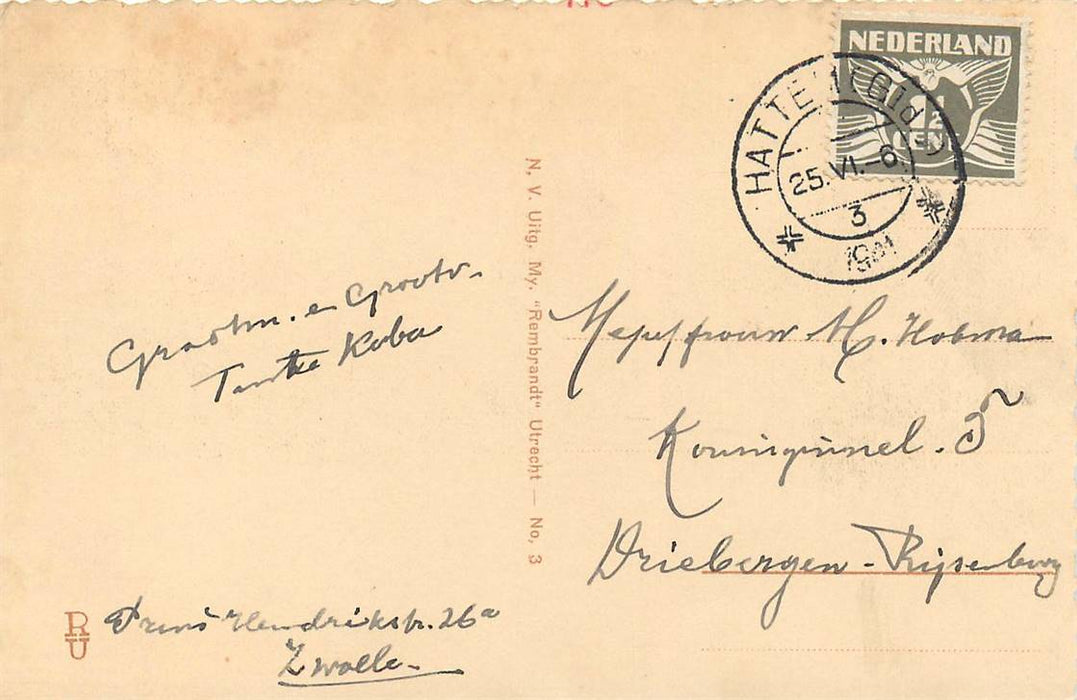 NEDERLAND
1½
CEN
HATTEM (Gld.)
25.VI.-6
3
1941
Grootm. en Grootv.
Tante Koba
N. V. Uitg. My. "Rembrandt" Utrecht — No, 3
Mejuffrouw M. Hobma
5
Driebergen-Rijsenburg
RU
Prins Hendrikstr. 26a
Zwolle